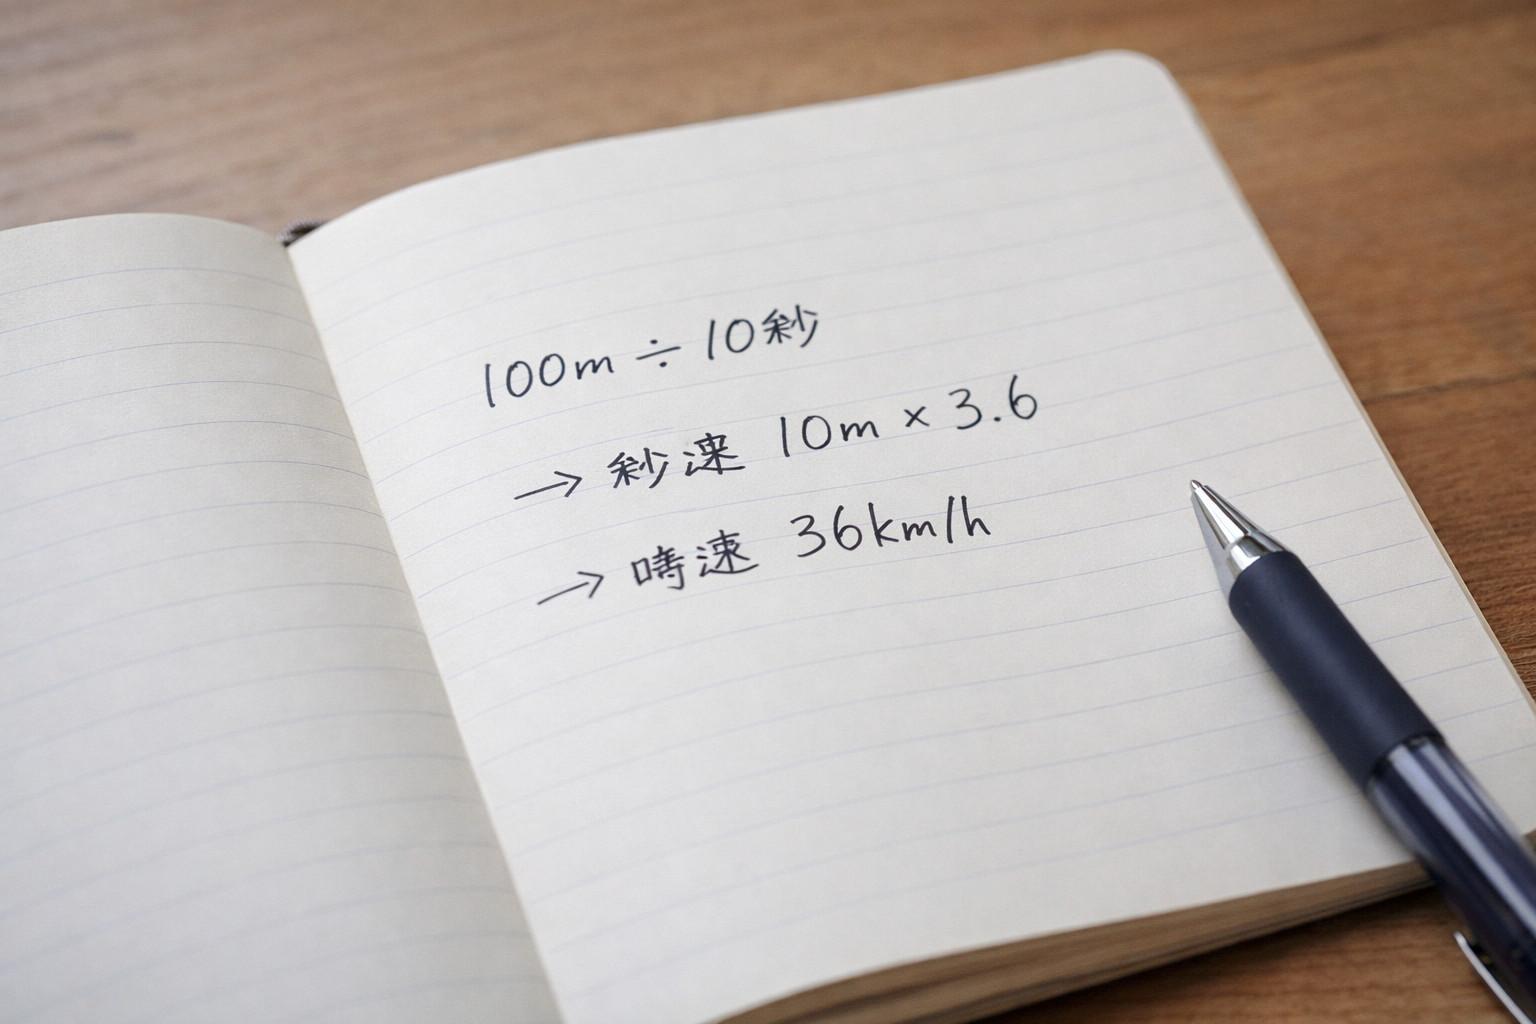 100m ÷ 10秒
→ 秒速 10m × 3.6
→ 時速 36km/h